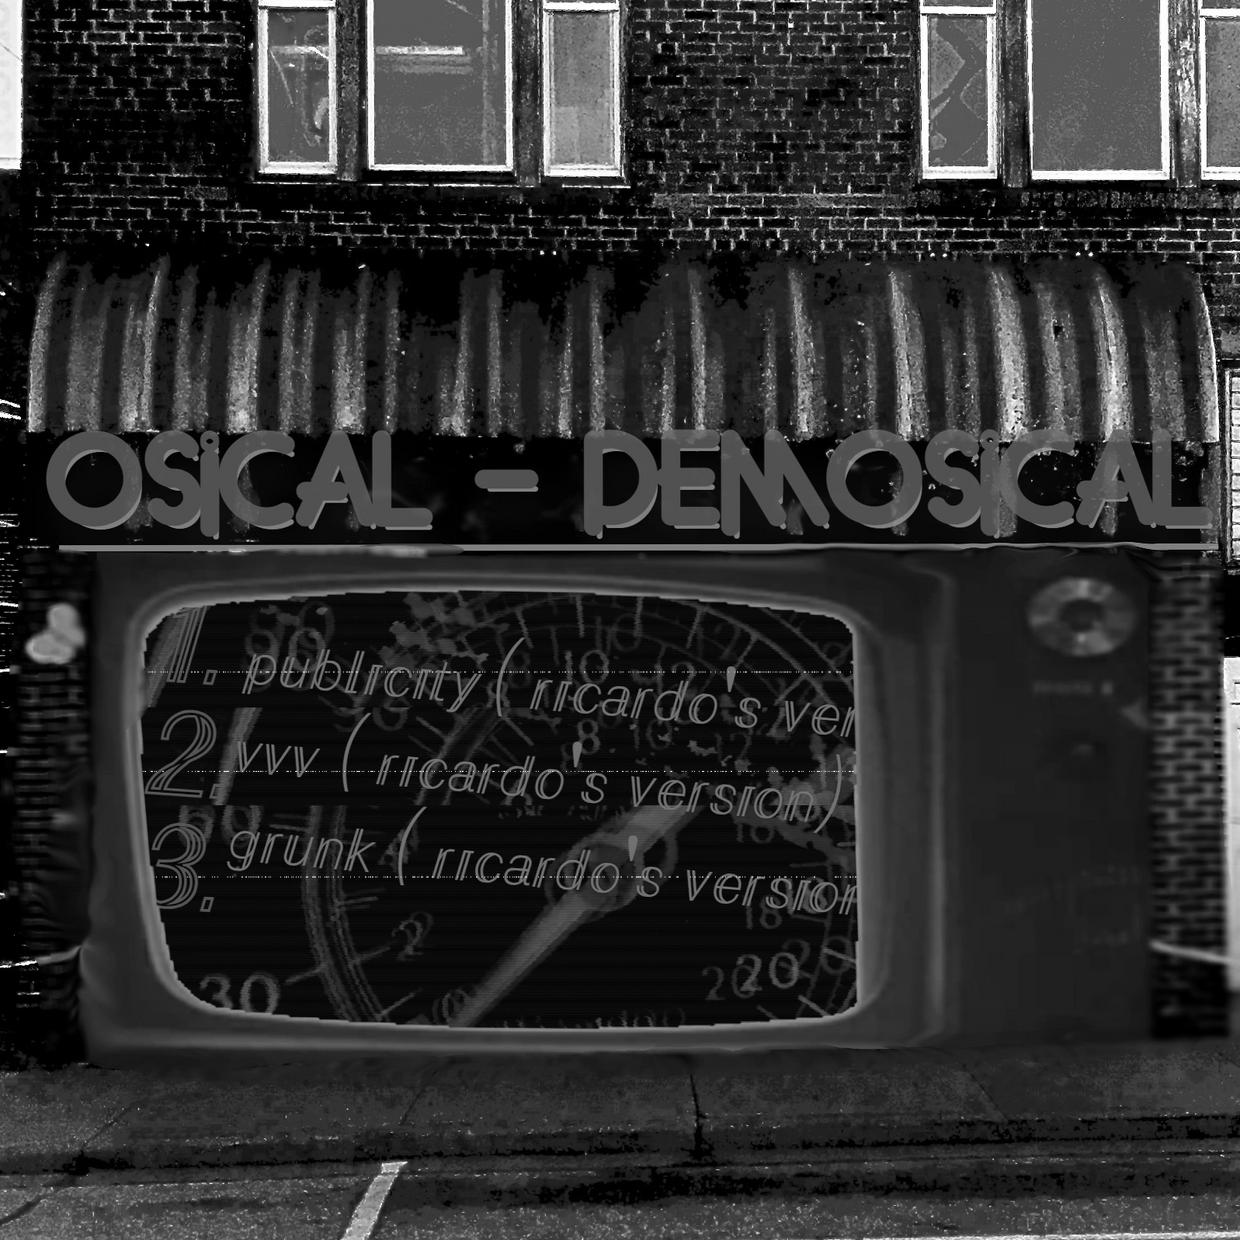 OSiCAL - DEMOSiCAL
1. publicity ( ricardo's ver
2. vvv ( ricardo's version)
3. grunk ( ricardo's version
80
10
8
30
2
18
20 20